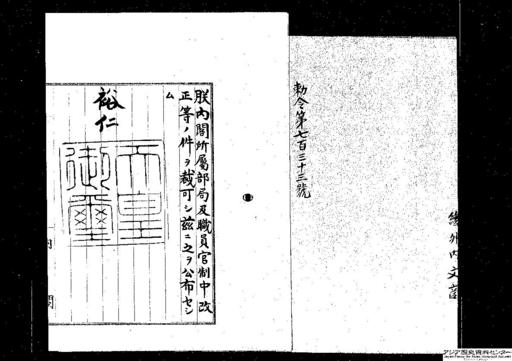 勅令第七百三十三號
朕內閣所屬部局及職員官制中改
正等ノ件ヲ裁可シ茲ニ之ヲ公布セシ
ム
裕仁
天皇
御璽
內閣
アジア歴史資料センター